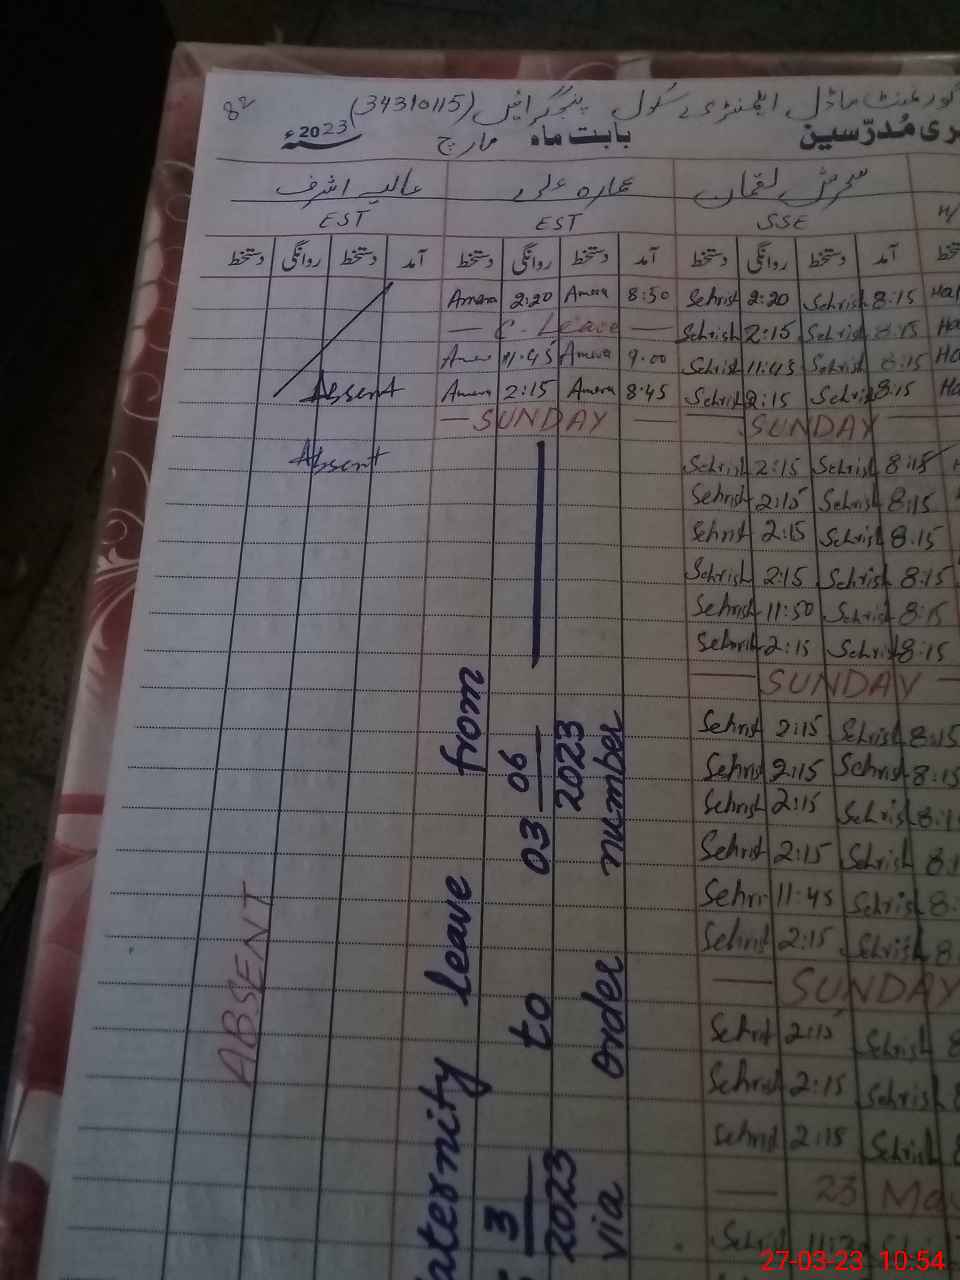 82
گورنمنٹ ماڈل ایلمنٹری سکول پنجگرائیں (34310115)
ری مُدرّسین بابت ماہ مارچ 2023ء
سحرش لقمان عمارہ علی عالیہ اشرف
SSE EST EST
دستخط آمد دستخط روانگی دستخط آمد دستخط روانگی دستخط آمد دستخط روانگی دستخط
Amera 2:20 Amera 8:50 Sehrish 2:20 Sehrish 8:15
— C. Leave — Sehrish 2:15 Sehrish 8:15
Amera 11:45 Amera 9.00 Sehrish 11:45 Sehrish 8:15
Absent Amera 2:15 Amera 8:45 Sehrish 2:15 Sehrish 8:15
— SUNDAY — SUNDAY
Absent Sehrish 2:15 Sehrish 8:15
Sehrish 2:15 Sehrish 8:15
Sehrish 2:15 Sehrish 8.15
Sehrish 2:15 Sehrish 8:15
Sehrish 11:50 Sehrish 8:15
Sehrish 2:15 Sehrish 8:15
— SUNDAY —
Sehrish 2:15 Sehrish 8:15
Sehrish 2:15 Sehrish 8:15
Sehrish 2:15 Sehrish 8:1
Sehrish 2:15 Sehrish 8.1
Sehrish 11:45 Sehrish 8:
Sehrish 2:15 Sehrish 8
— SUNDAY
Sehrish 2:15 Sehrish 8
Sehrish 2:15 Sehrish
Sehrish 2:15 Sehrish
— 23 Ma
Sehrish
ABSENT
aternity leave from
3 2023 to 03 06 2023
via order number
27-03-23 10:54